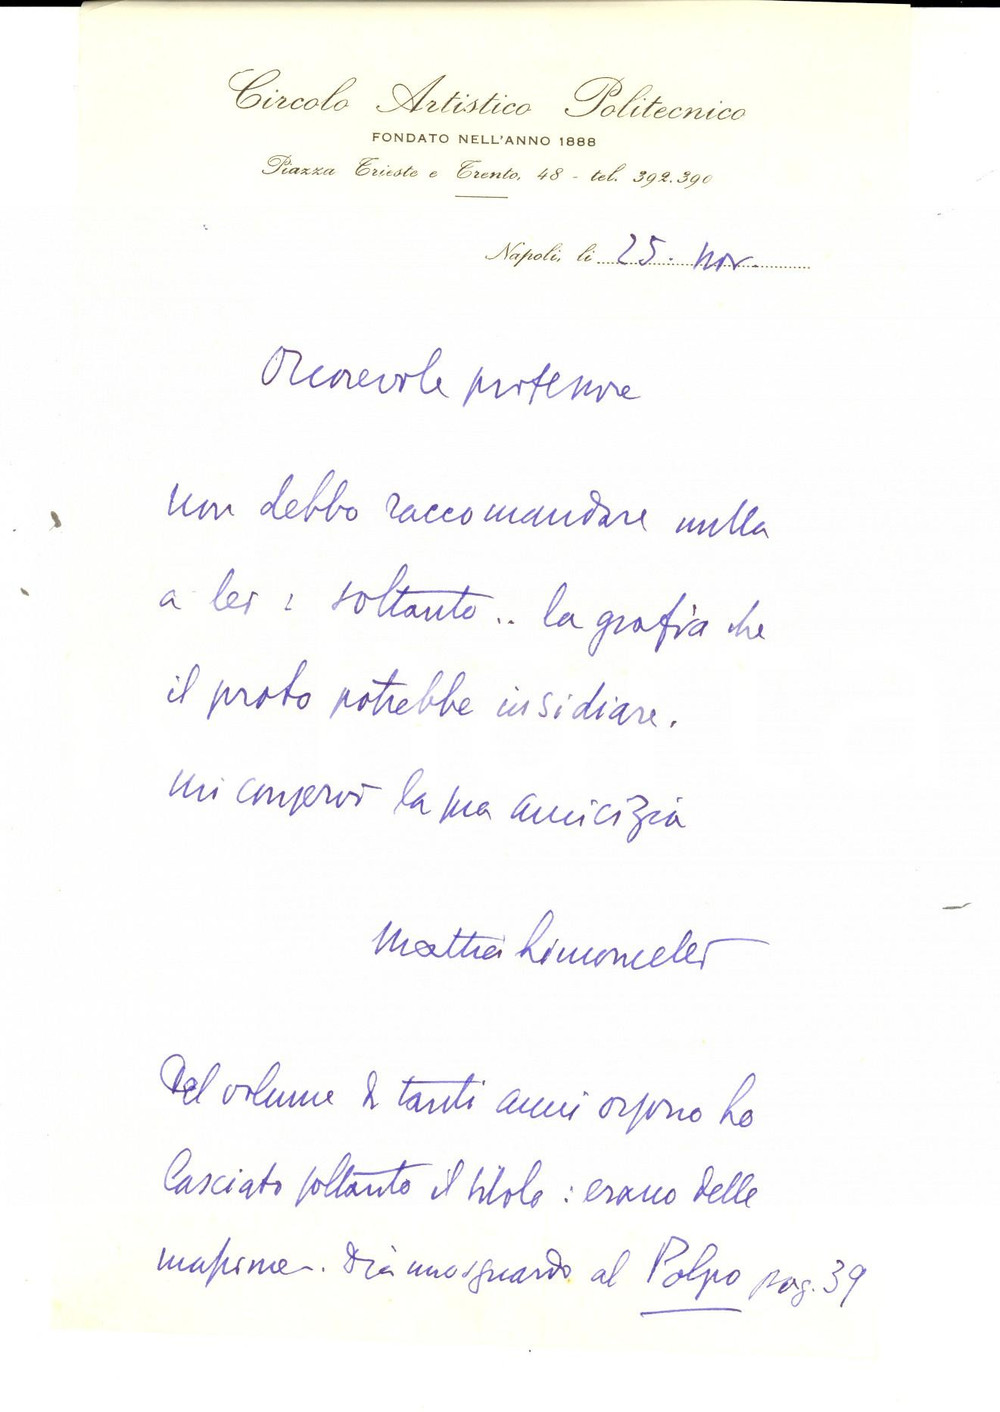 Circolo Artistico Politecnico
FONDATO NELL'ANNO 1888
Piazza Trieste e Trento, 48 - tel. 392.390
Napoli, li 25. nov.
Onorevole professore
non debbo raccomandare nulla
a lei : soltanto.. la grafia che
il proto potrebbe insidiare.
mi conservi la sua amicizia
Mattia Limoncelli
Del volume di tanti anni or sono ho
lasciato soltanto il titolo : erano delle
massime. Dia uno sguardo al Polpo pag. 39